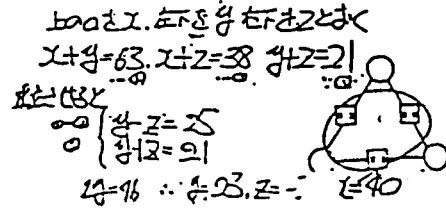 上の○をx.左下をy右下をzとおく
x+y=63. x+z=38 y+z=21
y-z=25
y+z=21
2y=46 ∴y=23. z=-2 x=40